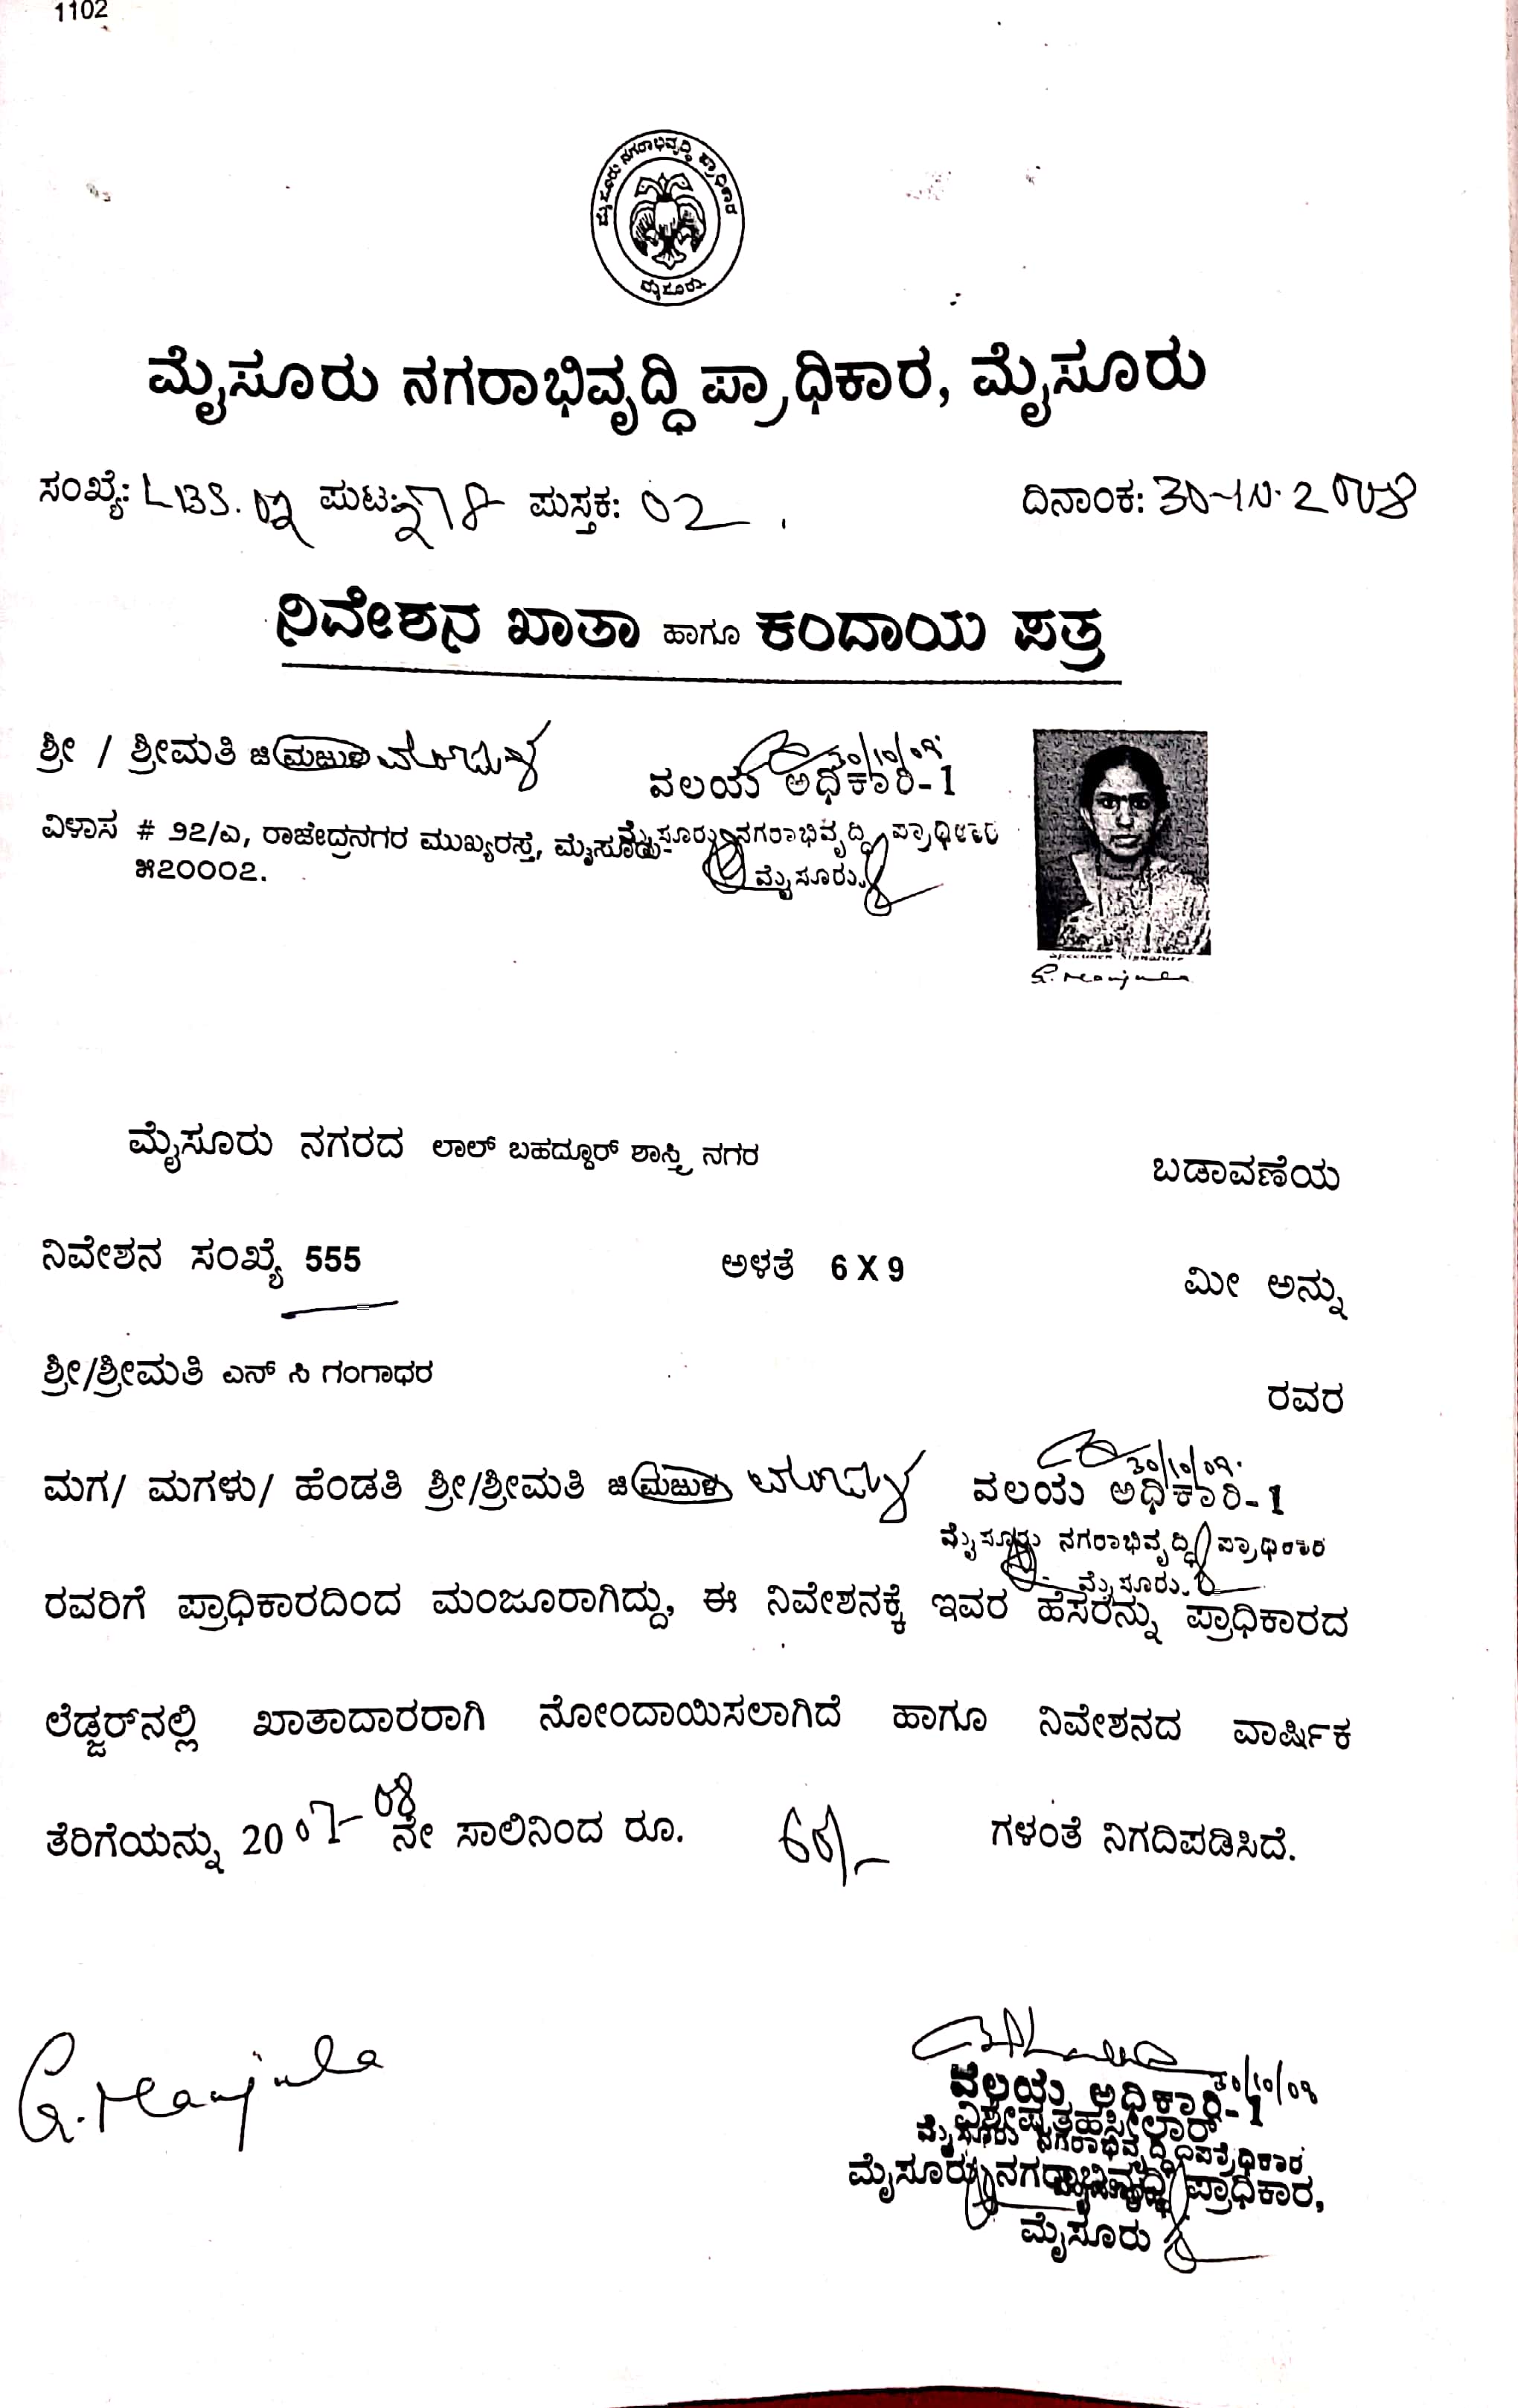 1102
ಮೈಸೂರು ನಗರಾಭಿವೃದ್ಧಿ ಪ್ರಾಧಿಕಾರ
ಮೈಸೂರು
ಮೈಸೂರು ನಗರಾಭಿವೃದ್ಧಿ ಪ್ರಾಧಿಕಾರ, ಮೈಸೂರು
ಸಂಖ್ಯೆ: LBS. ಪುಟ: ಪುಸ್ತಕ: 02 ದಿನಾಂಕ: 30-10-2008
ನಿವೇಶನ ಖಾತಾ ಹಾಗೂ ಕಂದಾಯ ಪತ್ರ
ಶ್ರೀ / ಶ್ರೀಮತಿ ಜಿ ಮಜುಳ ಮಂಜುಳ
ವಲಯ ಅಧಿಕಾರಿ-1
ವಿಳಾಸ # ೨೭/ಎ, ರಾಜೇದ್ರನಗರ ಮುಖ್ಯರಸ್ತೆ, ಮೈಸೂರು-
೫೭೦೦೦೭.
ಮೈಸೂರು ನಗರಾಭಿವೃದ್ಧಿ ಪ್ರಾಧಿಕಾರ
ಮೈಸೂರು.
Specimen Signature
G. Manjula
ಮೈಸೂರು ನಗರದ ಲಾಲ್ ಬಹದ್ದೂರ್ ಶಾಸ್ತ್ರಿ ನಗರ ಬಡಾವಣೆಯ
ನಿವೇಶನ ಸಂಖ್ಯೆ 555 ಅಳತೆ 6 X 9 ಮೀ ಅನ್ನು
ಶ್ರೀ/ಶ್ರೀಮತಿ ಎನ್ ಸಿ ಗಂಗಾಧರ ರವರ
ಮಗ/ ಮಗಳು/ ಹೆಂಡತಿ ಶ್ರೀ/ಶ್ರೀಮತಿ ಜಿ ಮಜುಳ ಮಂಜುಳ
ವಲಯ ಅಧಿಕಾರಿ-1
ಮೈಸೂರು ನಗರಾಭಿವೃದ್ಧಿ ಪ್ರಾಧಿಕಾರ
ಮೈಸೂರು.
ರವರಿಗೆ ಪ್ರಾಧಿಕಾರದಿಂದ ಮಂಜೂರಾಗಿದ್ದು, ಈ ನಿವೇಶನಕ್ಕೆ ಇವರ ಹೆಸರನ್ನು ಪ್ರಾಧಿಕಾರದ
ಲೆಡ್ಜರ್‌ನಲ್ಲಿ ಖಾತಾದಾರರಾಗಿ ನೋಂದಾಯಿಸಲಾಗಿದೆ ಹಾಗೂ ನಿವೇಶನದ ವಾರ್ಷಿಕ
ತೆರಿಗೆಯನ್ನು 2007-08ನೇ ಸಾಲಿನಿಂದ ರೂ. 60/- ಗಳಂತೆ ನಿಗದಿಪಡಿಸಿದೆ.
G. Manjula
ವಲಯ ಅಧಿಕಾರಿ-1
ವಿಶೇಷ ತಹಸೀಲ್ದಾರ್
ಮೈಸೂರು ನಗರಾಭಿವೃದ್ಧಿ ಪ್ರಾಧಿಕಾರ
ಮೈಸೂರು ನಗರಾಭಿವೃದ್ಧಿ ಪ್ರಾಧಿಕಾರ,
ಮೈಸೂರು